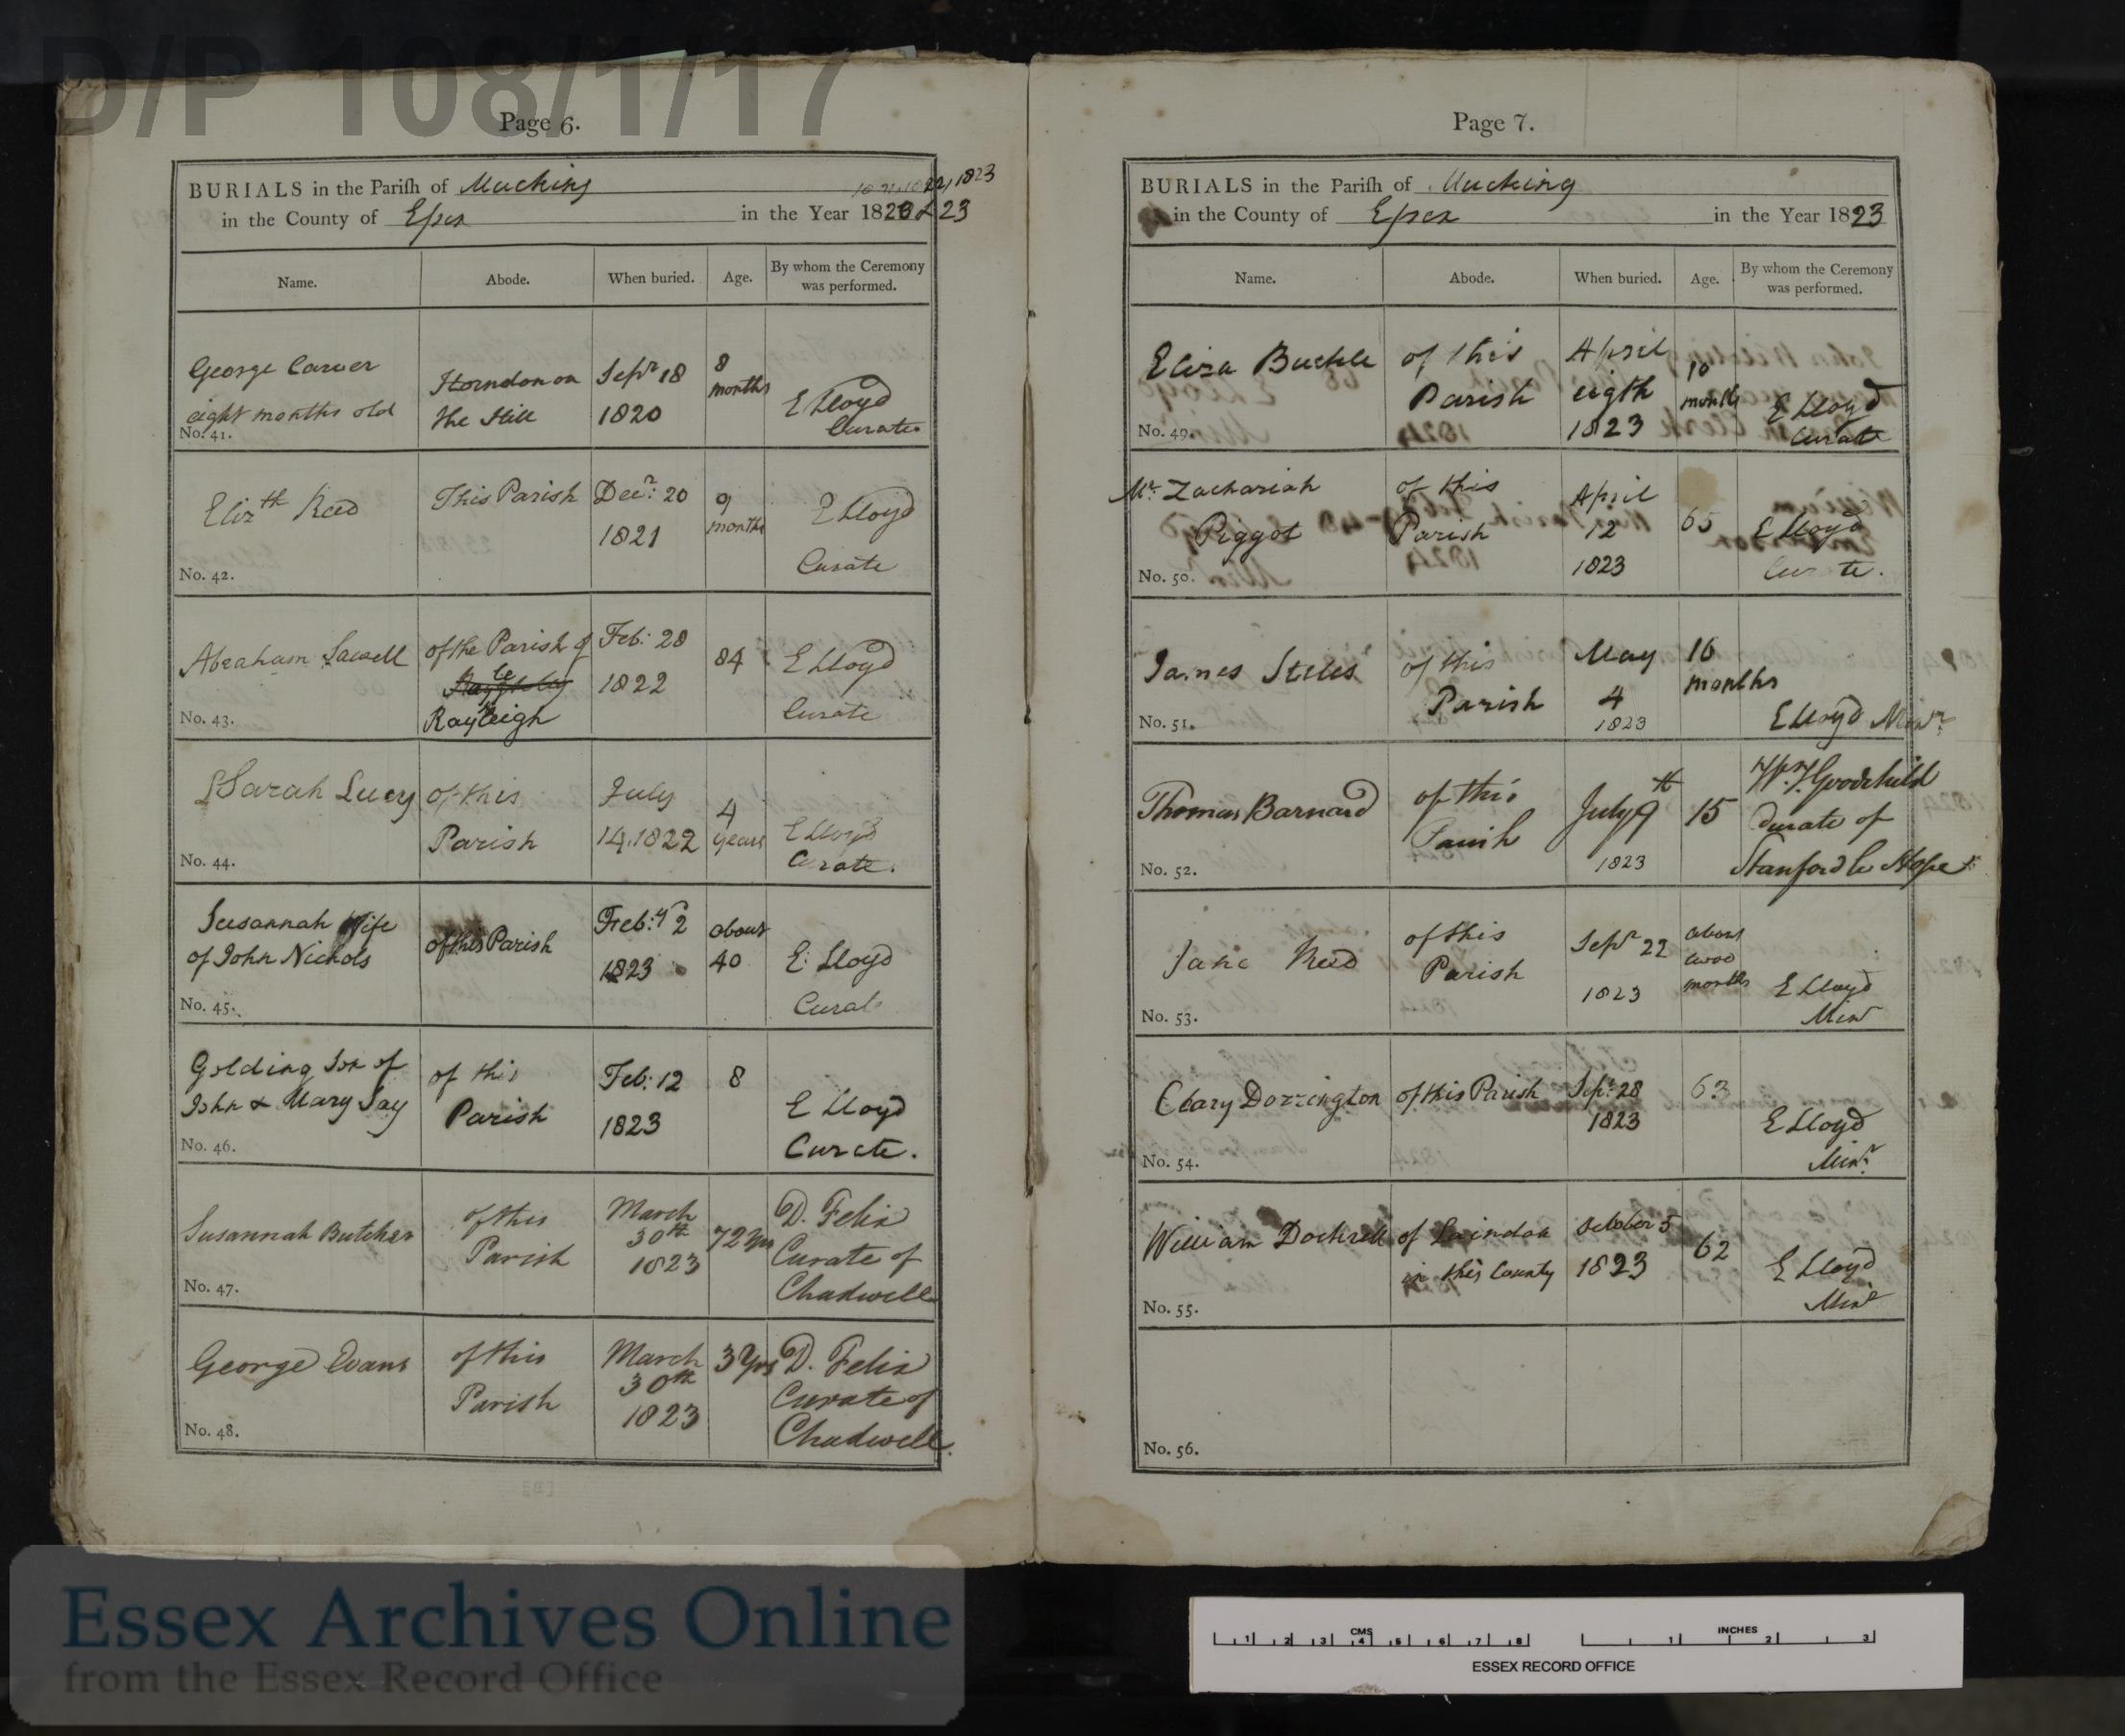 D/P 108/1/17
Page 6.
BURIALS in the Pariſh of Mucking
1821, 1822, 1823
in the County of Essex in the Year 1820 & 23
Name. Abode. When buried. Age. By whom the Ceremony was performed.
George Carver
eight months old
No. 41.
Horndon on
the Hill
Sepr 18
1820
8
months
E Lloyd
Curate
Elizth Reed
No. 42.
This Parish
Decr: 20
1821
9
months
E Lloyd
Curate
Abraham
No. 43.
of the Parish of
Rayleigh
Feb: 28
1822
84
E Lloyd
Curate
Sarah Lucy
No. 44.
of this
Parish
July
14. 1822
4
years
E Lloyd
Curate.
Susannah Wife
of John Nichols
No. 45.
of this Parish
Feb: 2
1823
about
40
E. Lloyd
Curate
Golding Son of
John & Mary Jay
No. 46.
of this
Parish
Feb: 12
1823
8
E Lloyd
Curate.
Susannah Butcher
No. 47.
of this
Parish
March
30th
1823
72 yrs
D. Felix
Curate of
Chadwell
George Evans
No. 48.
of this
Parish
March
30th
1823
3 Yrs
D. Felix
Curate of
Chadwell.
Page 7.
BURIALS in the Pariſh of Mucking
in the County of Essex in the Year 1823
Name. Abode. When buried. Age. By whom the Ceremony was performed.
Eliza Buckle
No. 49.
of this
Parish
April
eigth
1823
10
months
E Lloyd
Curate
Mr. Zachariah
Piggot
No. 50.
of this
Parish
April
12
1823
65
E Lloyd
Curate.
James Stiles
No. 51.
of this
Parish
May
4
1823
16
months
E Lloyd Minr
Thomas Barnard
No. 52.
of this
Parish
July 9th
1823
15
Goodchild
Curate of
Stanford le Hope
Jane Reed
No. 53.
of this
Parish
Sepr 22
1823
about
twoo
months
E Lloyd
Minr
Clary Dorrington
No. 54.
of this Parish
Sepr: 28
1823
63
E Lloyd
Minr
William Dockrell
No. 55.
of Laindon
in this County
October 5
1823
62
E Lloyd
Minr
No. 56.
Essex Archives Online
from the Essex Record Office
CMS
1 2 3 4 5 6 7 8
INCHES
1 2 3
ESSEX RECORD OFFICE